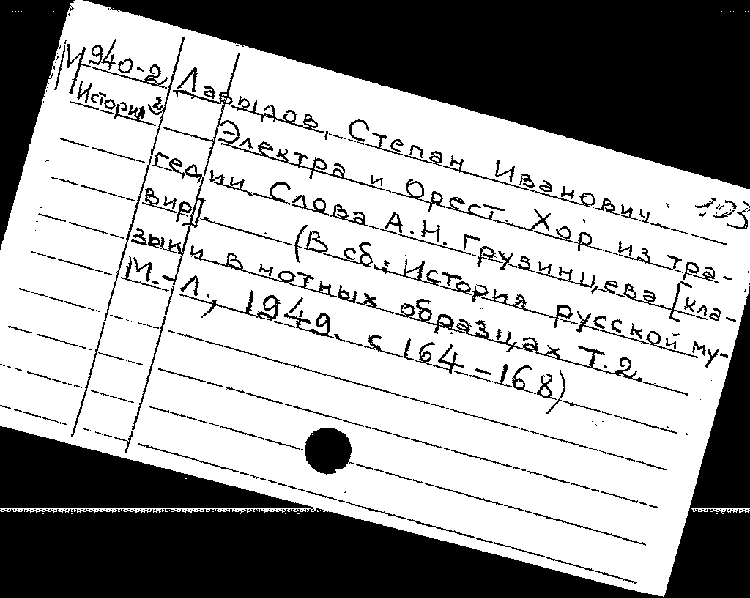 М940-2 Давыдов, Степан Иванович. 193
История 2
Электра и Орест. Хор из тра-
гедии. Слова А.Н. Грузинцева. [кла-
вир]. (В сб.: История русской му-
зыки в нотных образцах Т.2.
М.-Л., 1949. с 164-168).